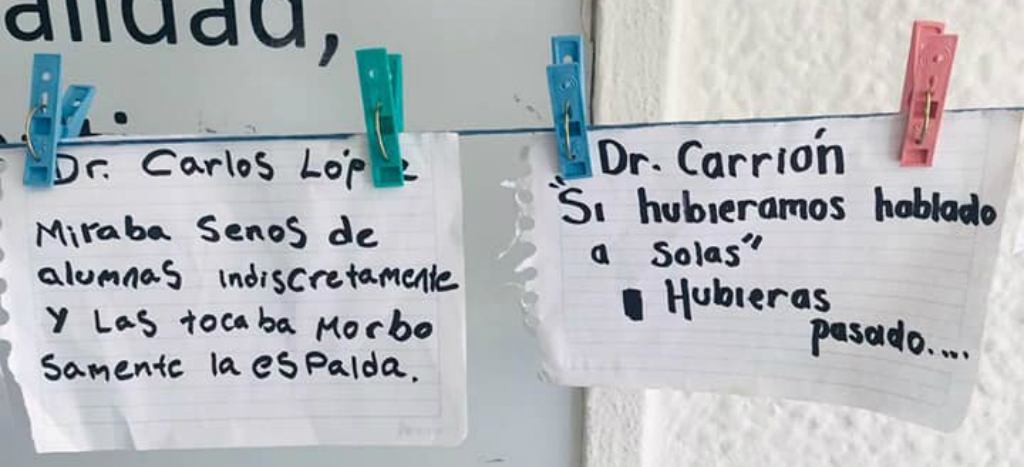 alidad,
Dr. Carlos López
Miraba senos de
alumnas indiscretamente
y las tocaba morbo
samente la espalda.
Dr. Carrión
"Si hubieramos hablado
a solas"
Hubieras
pasado....